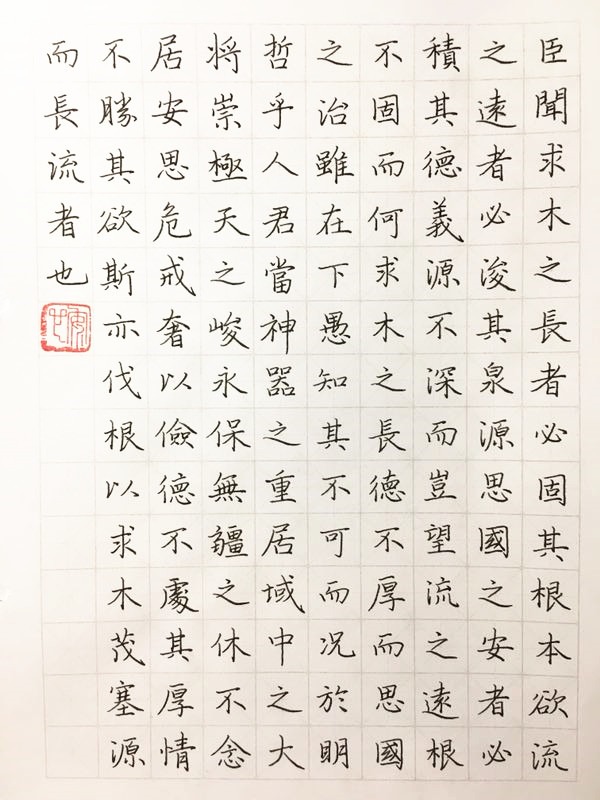 臣聞求木之長者必固其根本欲流
之遠者必浚其泉源思國之安者必
積其德義源不深而豈望流之遠根
不固而何求木之長德不厚而思國
之治雖在下愚知其不可而况於明
哲乎人君當神器之重居域中之大
将崇極天之峻永保無疆之休不念
居安思危戒奢以儉德不處其厚情
不勝其欲斯亦伐根以求木茂塞源
而長流者也